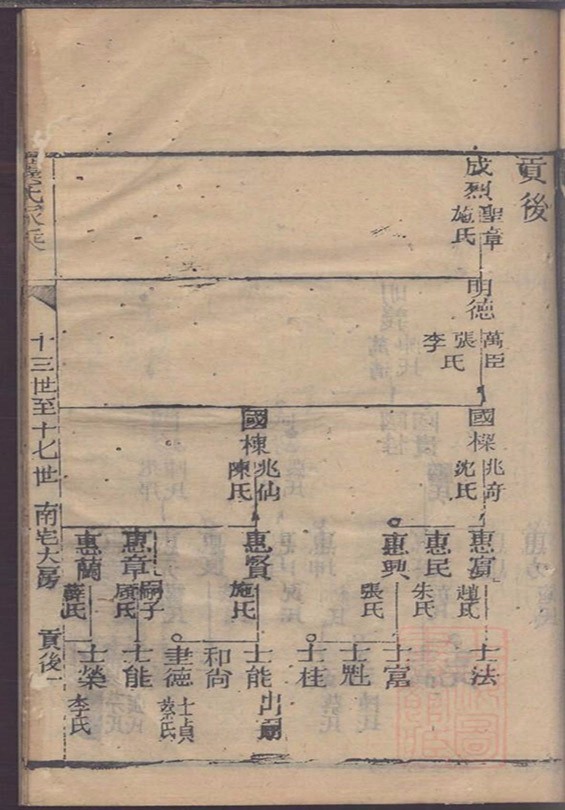 貢後
成烈
聖章
施氏
明德
萬臣
張氏
李
國樑
兆奇
沈氏
國棟
兆仙
陳氏
惠富
趙氏
惠民
朱氏
惠興
張氏
惠賢
施氏
惠章
嗣子
顧氏
惠蘭
薛氏
士法
士富
士魁
士桂
士能
出嗣
和尚
士德
士貞
蔡氏
士能
士榮
李氏
氏家乘
十三世至十七世
南宅大房
貢後一